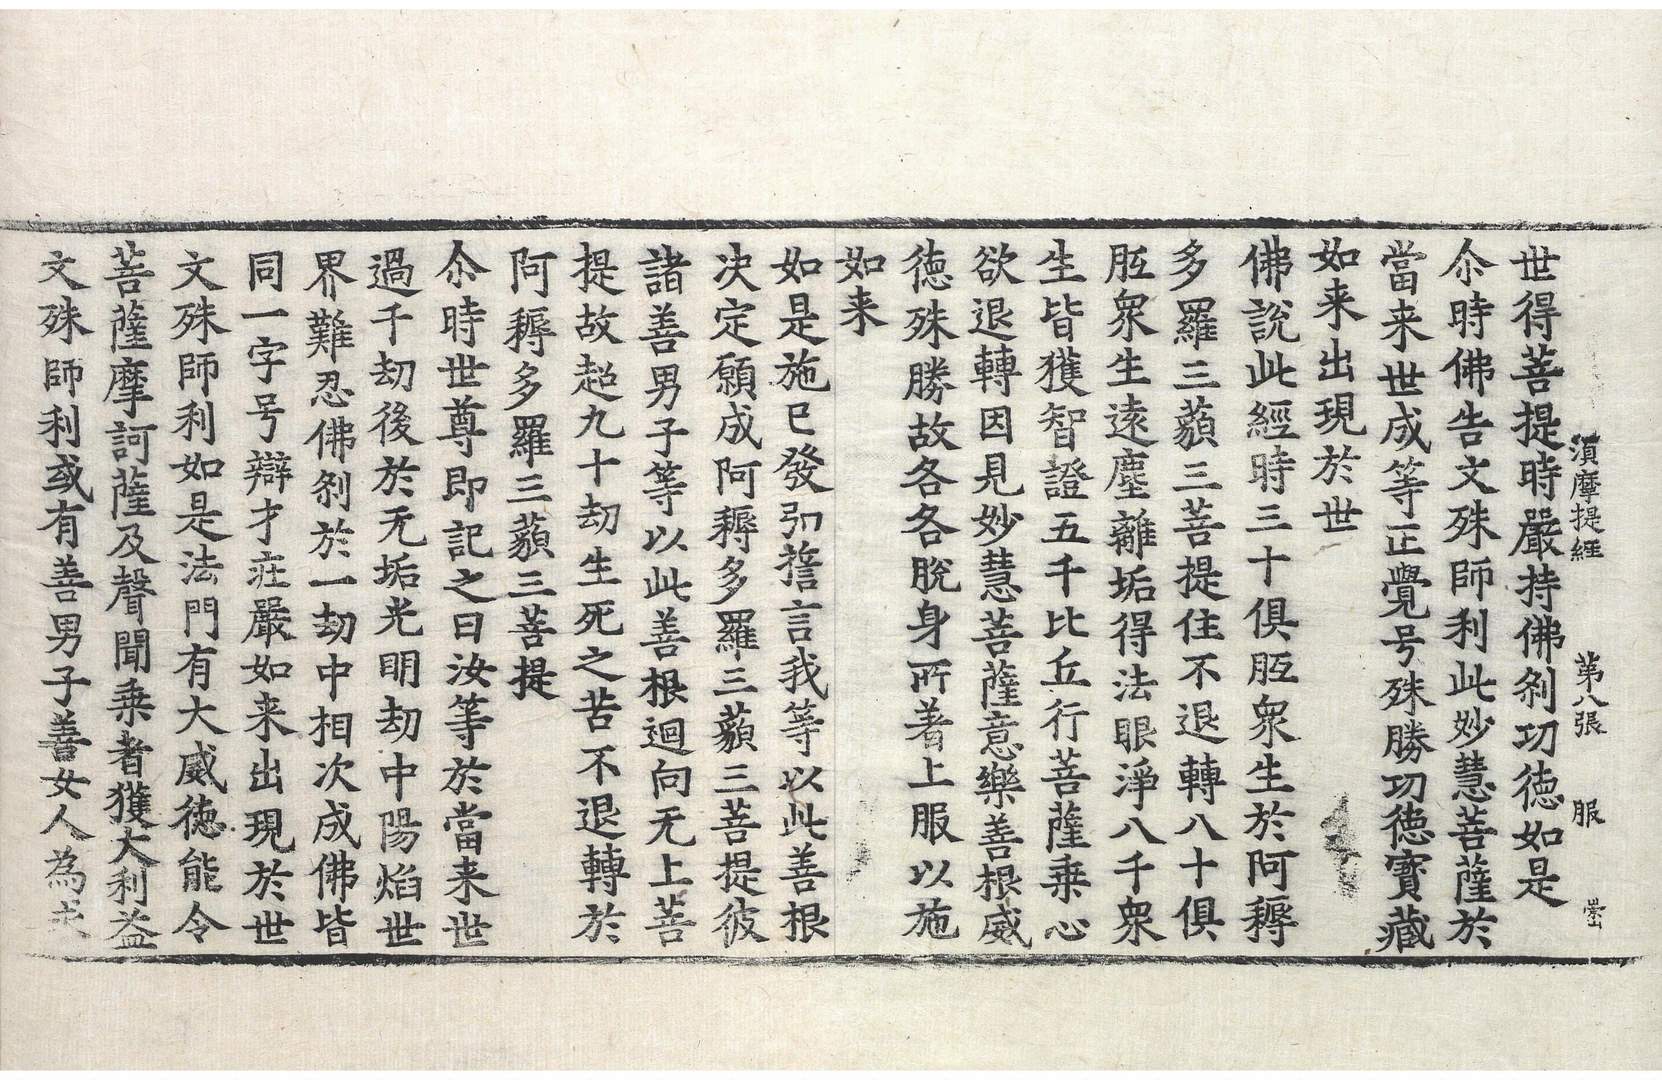 湏摩提經　第八張　服　崇
世得菩提時嚴持佛刹功德如是
尒時佛告文殊師利此妙慧菩薩於
當来世成等正覺号殊勝功德寳藏
如来出現於世
佛說此經時三十俱胝衆生於阿耨
多羅三藐三菩提住不退轉八十俱
胝衆生遠塵離垢得法眼淨八千衆
生皆獲智證五千比丘行菩薩乗心
欲退轉因見妙慧菩薩意樂善根威
德殊勝故各各脫身所著上服以施
如来
如是施已發弘誓言我等以此善根
决定願成阿耨多羅三藐三菩提彼
諸善男子等以此善根迴向无上菩
提故超九十劫生死之苦不退轉於
阿耨多羅三藐三菩提
尒時世尊即記之曰汝等於當来世
過千劫後於无垢光明劫中陽焰世
界難忍佛刹於一劫中相次成佛皆
同一字号辯才莊嚴如来出現於世
文殊師利如是法門有大威德能令
菩薩摩訶薩及聲聞乗者獲大利益
文殊師利或有善男子善女人為求